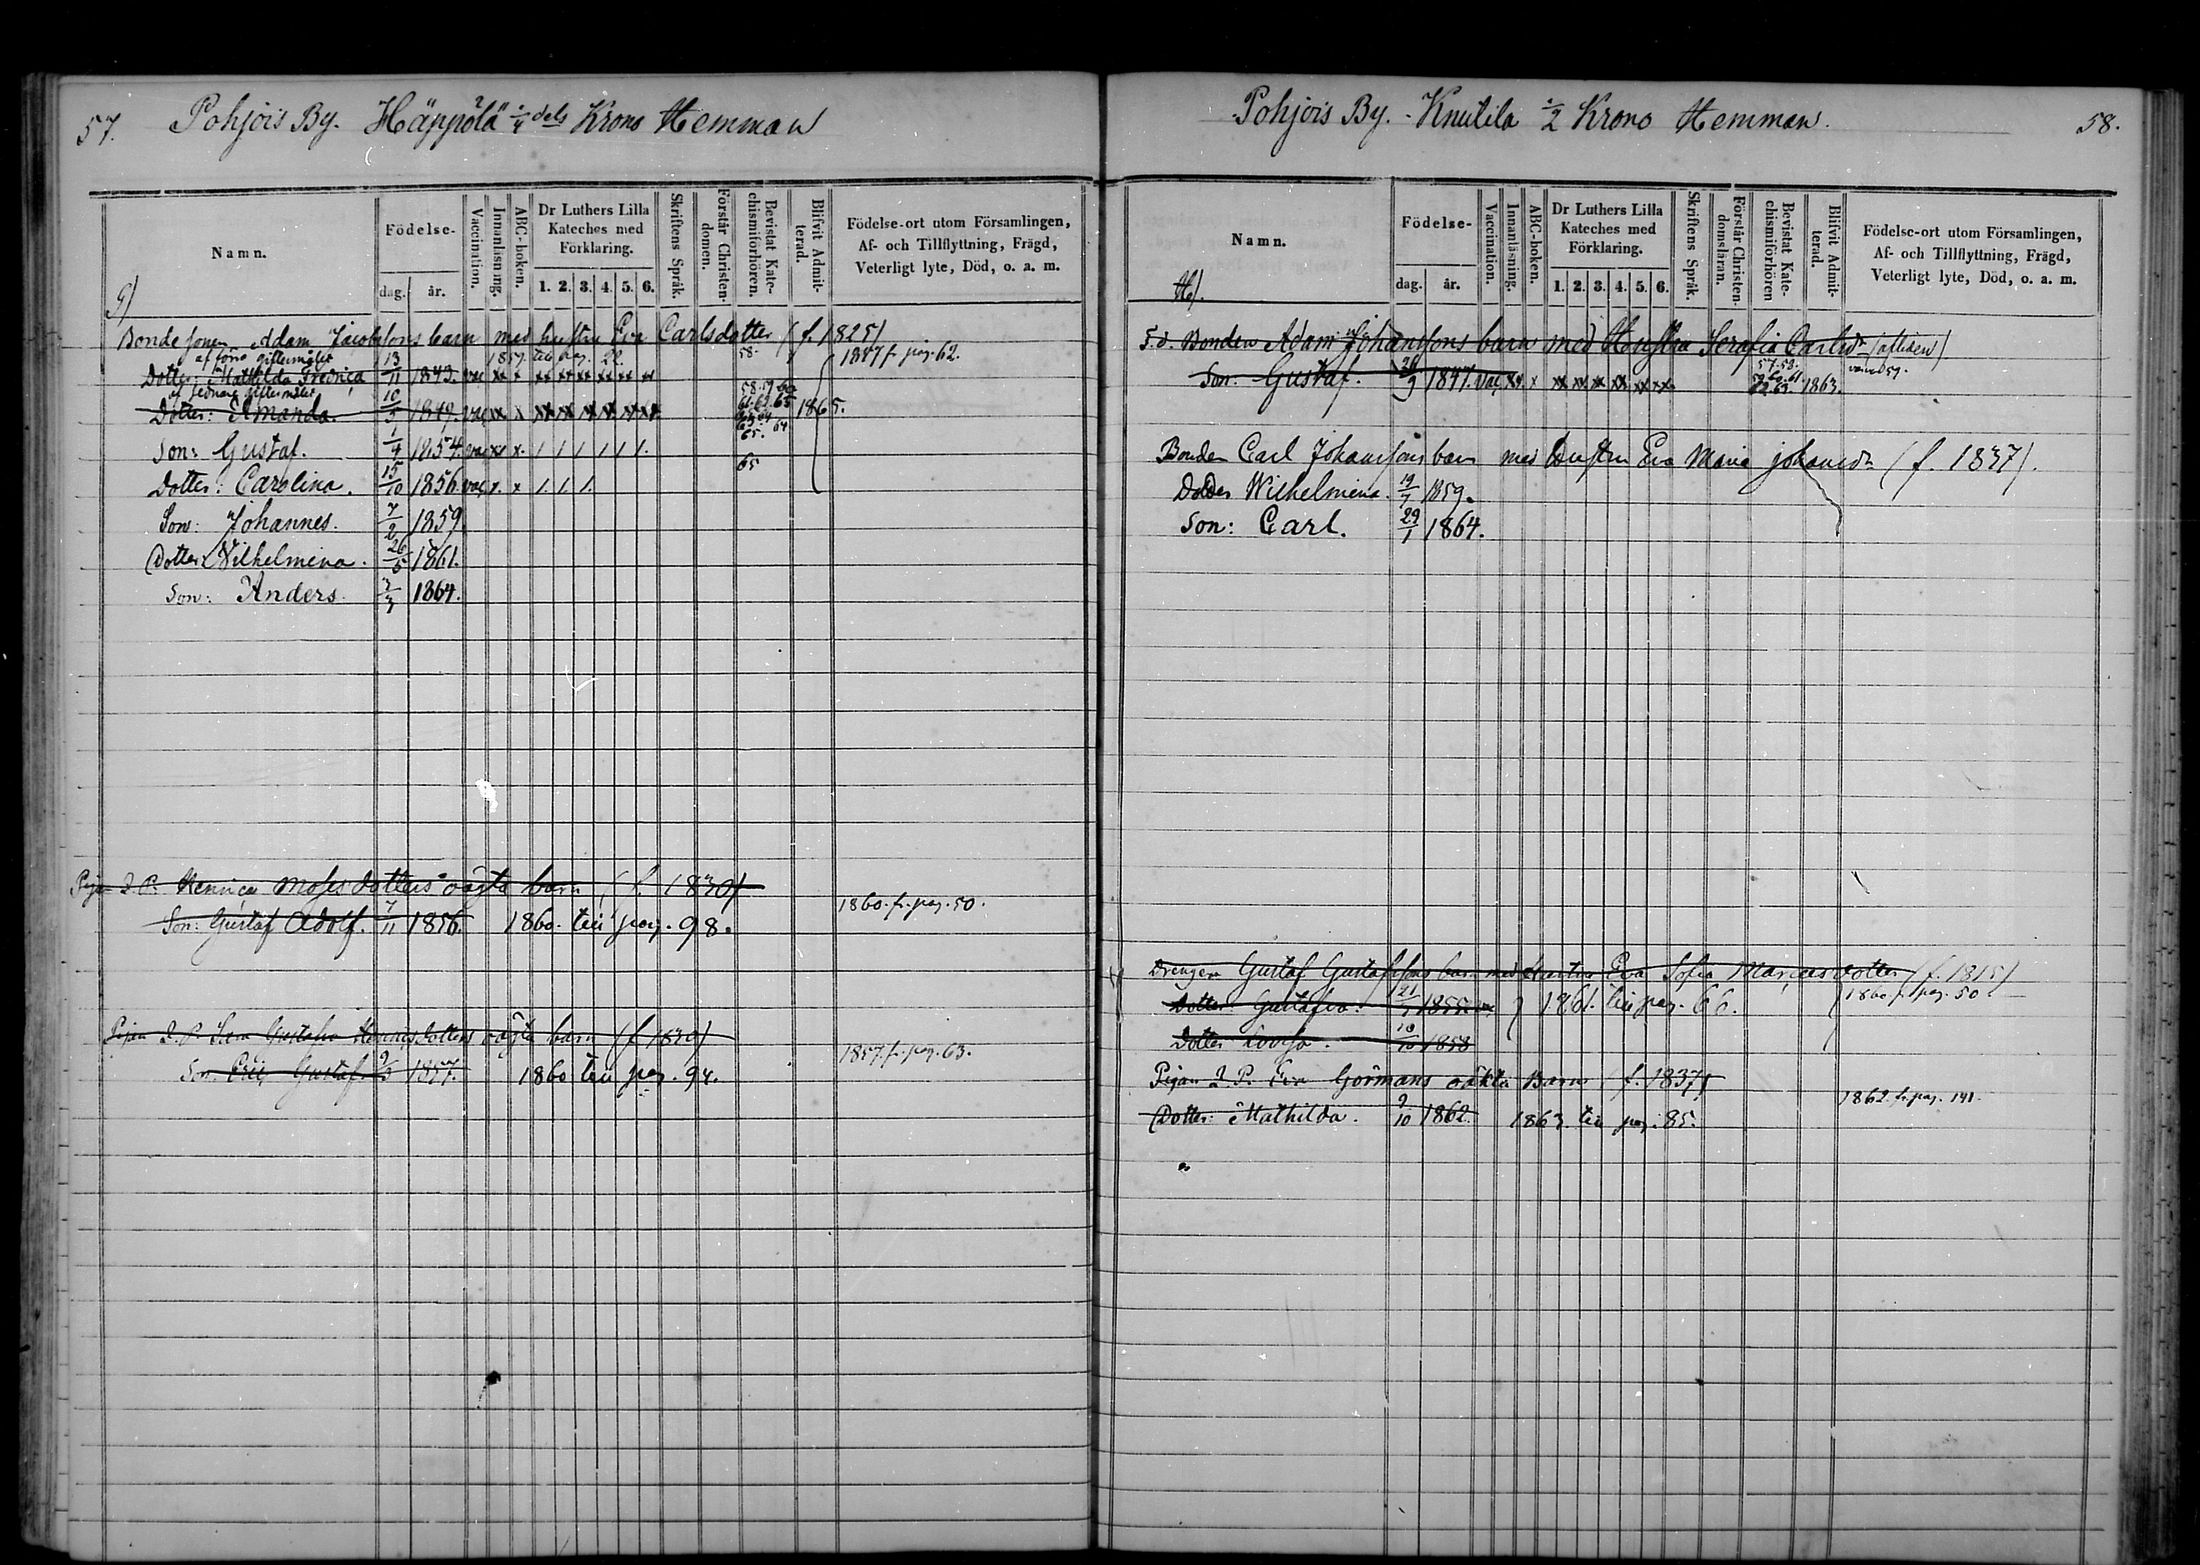 57. Pohjois By. Häppölä 1/4 dels Krono Hemman
Namn.
Födelse-
dag. år.
Vaccination.
Innanläsning.
ABC-boken.
Dr Luthers Lilla Kateches med Förklaring.
1. 2. 3. 4. 5. 6.
Skriftens Språk.
Förstår Christen-domen.
Bevistat Kate-chismiförhören.
Blifvit Admit-terad.
Födelse-ort utom Församlingen, Af- och Tillflyttning, Frägd, Veterligt lyte, Död, o. a. m.
G)
Bondesonen Adam Jacobssons barn med hustru Eva Carlsdotter (f. 1825)
af förra giftermålet 1857. till pag. 22. 58. 1857 f. pag. 62.
Dotter: Mathilda Fredrica 13/11 1843. vac
af sednare giftermålet 58. 59 60
Dotter: Amanda. 10/5 1849. vac xx x 61. 62. 65 1865.
Son: Gustaf. 1/4 1854. vac xx x. 1 1 1 1 1 1. 65.
Dotter: Carolina. 15/10 1856. vac x. x 1. 1. 1. 65
Son: Johannes. 7/2 1859.
Dotter: Wilhelmina. 26/5 1861.
Son: Anders. 1864.
Pigan I. P. Henrica Mosesdotters oägta barn (f. 1830)
Son: Gustaf Adolf. 7/11 1856. 1860. till pag. 98. 1860. fr. pag. 50.
Pigan I. P. Gustafva Henricsdotters oägta barn (f. 1830)
Son: Eric Gustaf. 1857. 1860 till pag. 94. 1857. fr. pag. 63.
Pohjois By. Knutila 1/2 Krono Hemman. 58.
Namn.
Födelse-
dag. år.
Vaccination.
Innanläsning.
ABC-boken.
Dr Luthers Lilla Kateches med Förklaring.
1. 2. 3. 4. 5. 6.
Skriftens Språk.
Förstår Christen-domsläran.
Bevistat Kate-chismiförhören
Blifvit Admit-terad.
Födelse-ort utom Församlingen, Af- och Tillflyttning, Frägd, Veterligt lyte, Död, o. a. m.
H).
F.d. Bonden Adam Johanssons barn med Hustru Serafia Carlsdr (afliden)
Son: Gustaf. 1847. vac. xx. x xx xx. xx xx. xx xx. 57. 58. 1863.
Bonden Carl Johanssons barn med Hustru Eva Maria Johansdr (f. 1837).
Dotter Wilhelmina. 19/7 1859.
Son: Carl. 29/1 1864.
Drengen Gustaf Gustafssons barn med Hustru Eva Sofia Mariasdotter (f. 1815)
Dotter Gustafva. 1855. 1861. till pag. 66. 1860 fr. pag. 50.
Dotter Lovisa. 18/10 1858
Pigan I. P. Eva Görmans oäkta Barn (f. 1837)
Dotter: Mathilda. 9/10 1862. 1863. till pag. 85. 1862. fr. pag. 141.